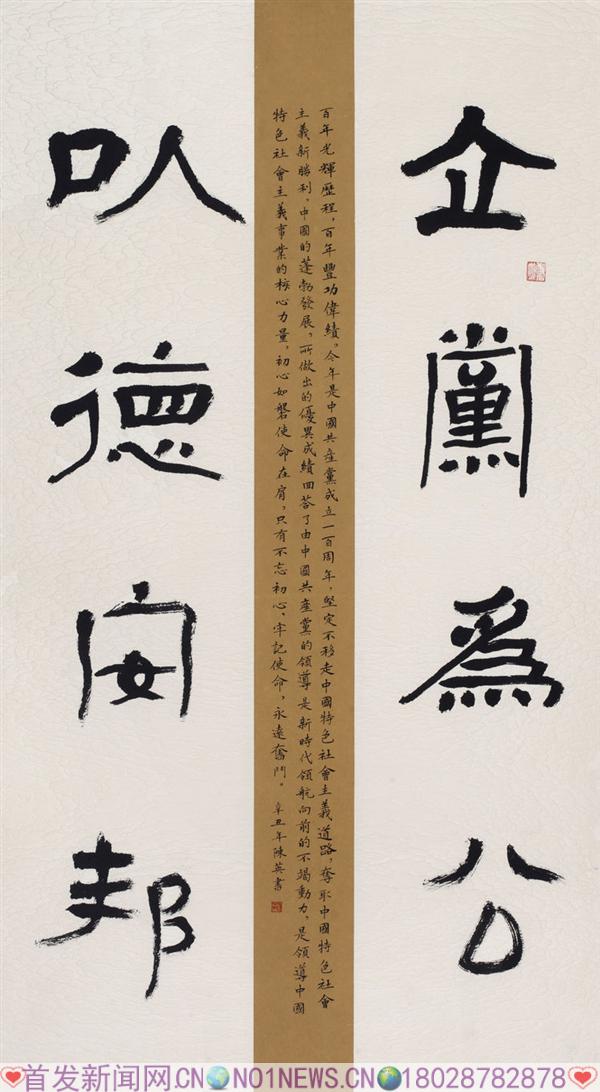 企黨爲公
百年光輝歷程，百年豐功偉績。今年是中國共產黨成立一百周年，堅定不移走中國特色社會主義道路，奪取中國特色社會
主義新勝利。中國的蓬勃發展，所做出的優異成績回答了由中國共產黨的領導是新時代領航向前的不竭動力，是領導中國
特色社會主義事業的核心力量，初心如磐使命在肩，只有不忘初心，牢記使命，永遠奮鬥。辛丑年陳英書
以德安邦
首发新闻网.CN NO1NEWS.CN 18028782878